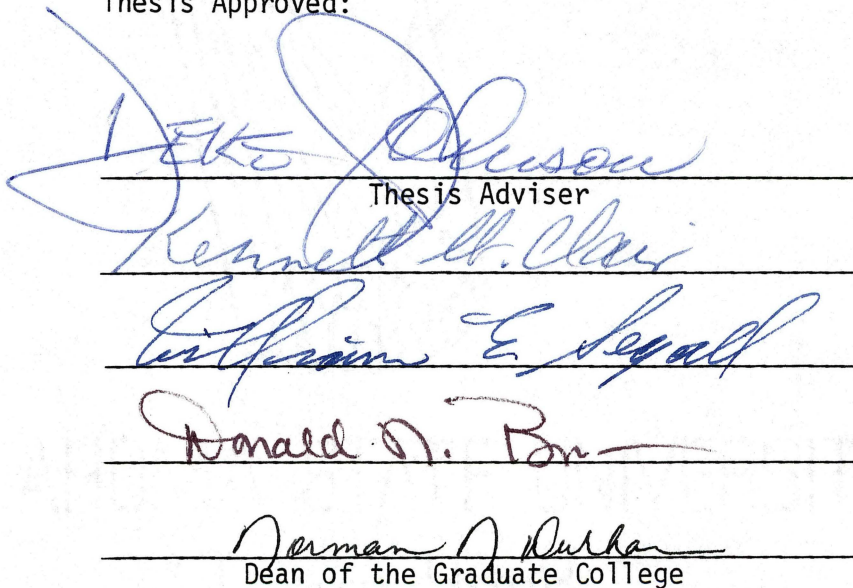 Thesis Approved:
Johnson
Thesis Adviser
Kenneth St. Clair
William E. Segall
Donald N. Brown
Norman N Durham
Dean of the Graduate College